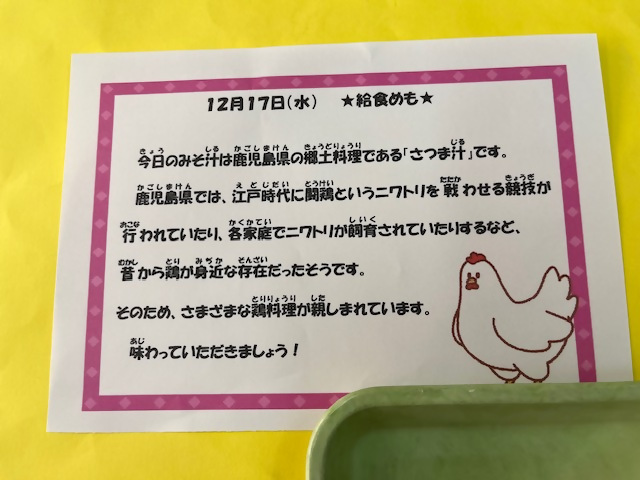 12月17日(水) ★給食めも★
今日のみそ汁は鹿児島県の郷土料理である「さつま汁」です。
鹿児島県では、江戸時代に闘鶏というニワトリを戦わせる競技が
行われていたり、各家庭でニワトリが飼育されていたりするなど、
昔から鶏が身近な存在だったそうです。
そのため、さまざまな鶏料理が親しまれています。
味わっていただきましょう!